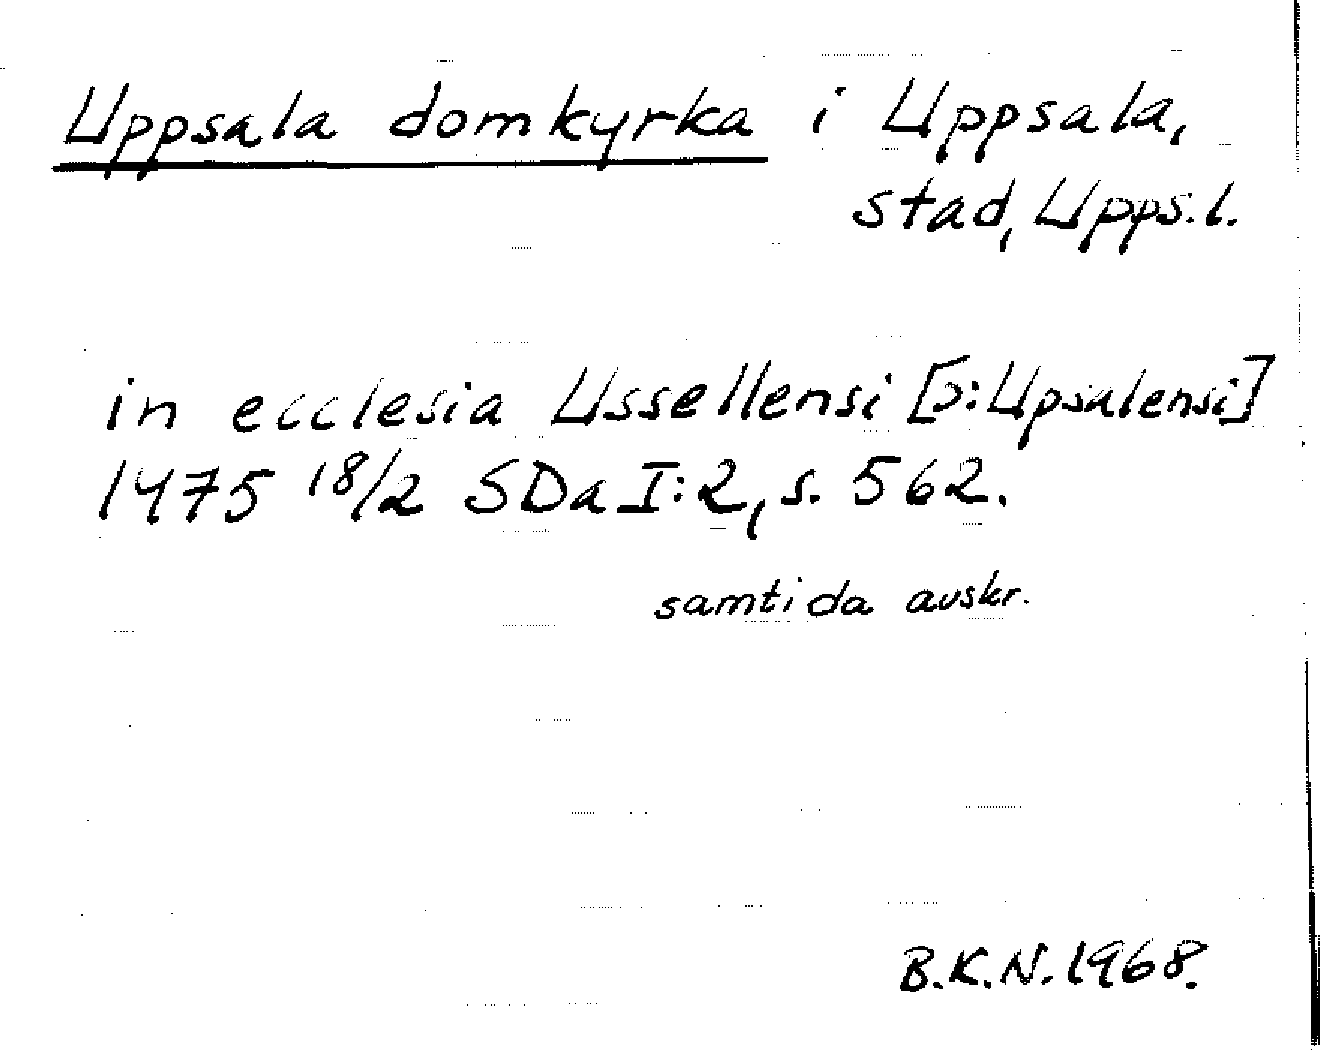 Uppsala domkyrka i Uppsala,
stad, Upps.l.
in ecclesia Ussellensi [ɔ: Upsalensi]
1475 18/2 SDa I:2, s. 562.
samtida avskr.
B.K.N. 1968.